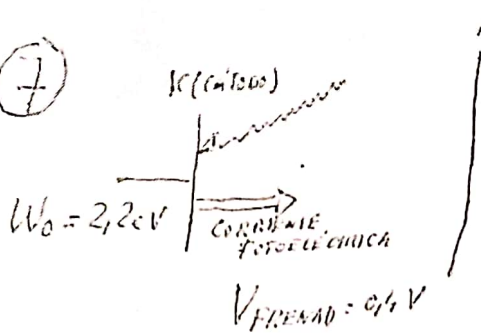 7
K(CÁTODO)
W₀ = 2,2 eV
CORRIENTE
FOTOELÉCTRICA
V FRENAD = 0,4 V